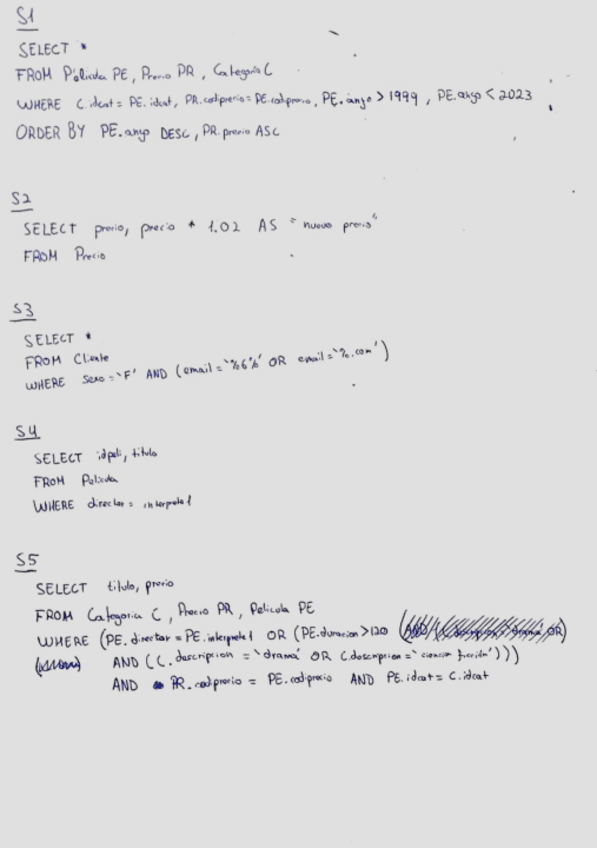 S1
SELECT *
FROM Pelicula PE, Precio PR, Categoria C
WHERE C.idcat = PE.idcat, PR.codprecio = PE.codprecio, PE.anyo > 1999, PE.anyo < 2023
ORDER BY PE.anyo DESC, PR.precio ASC
S2
SELECT precio, precio * 1.02 AS "nuevo precio"
FROM Precio
S3
SELECT *
FROM Cliente
WHERE sexo = 'F' AND (email = '%6%' OR email = '%.com')
S4
SELECT idpeli, titulo
FROM Pelicula
WHERE director = interprete1
S5
SELECT titulo, precio
FROM Categoria C, Precio PR, Pelicula PE
WHERE (PE.director = PE.interprete1 OR (PE.duracion > 120
AND ((C.descripcion = 'drama' OR C.descripcion = 'ciencia ficción')))
AND PR.codprecio = PE.codprecio AND PE.idcat = C.idcat